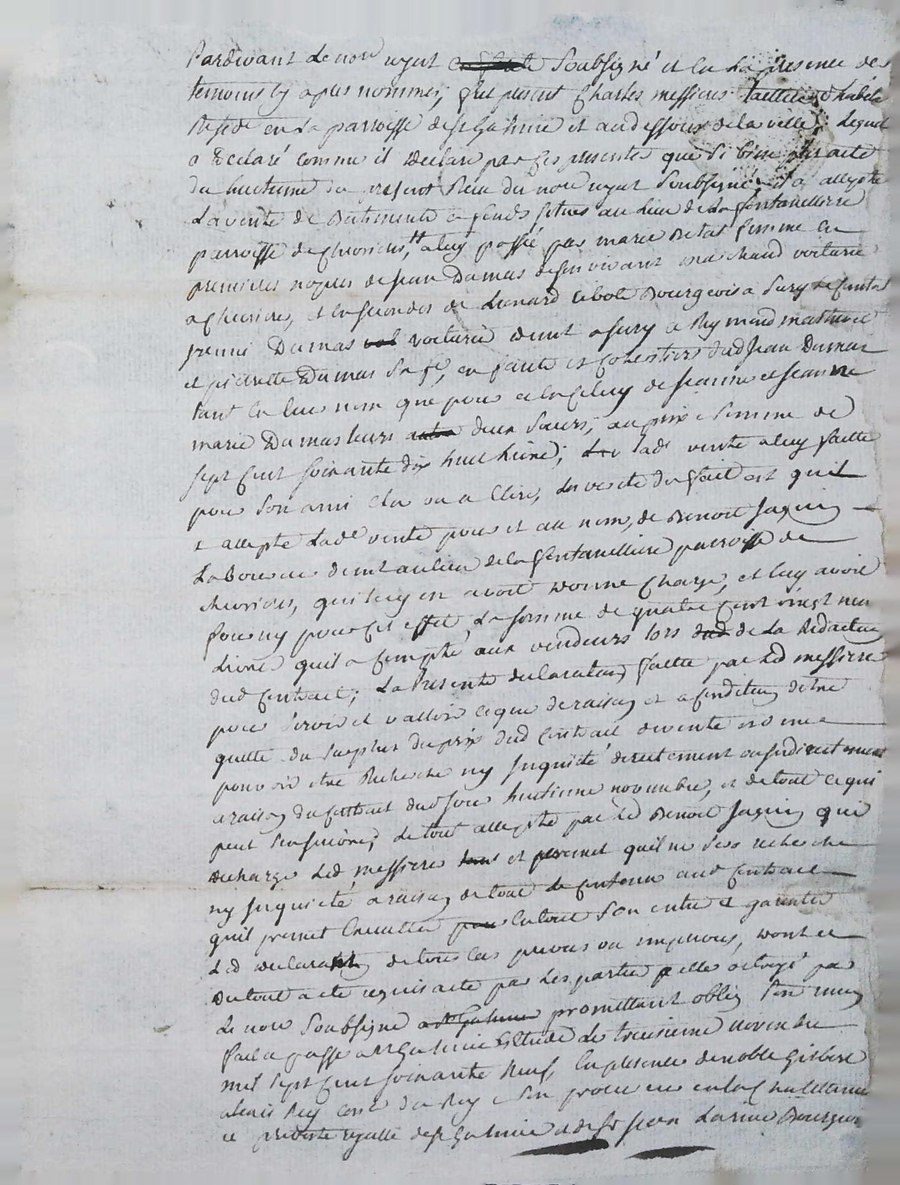 Pardevant Le nore royal Soubsigné et en La presence des
temoins cy apres nommés, fut present Charles messiere
Reside en La parroisse de st Galmie et au dessous de la ville, Lequel
a Declaré comme il declare par ces presentes que Si bien par acte
du huitieme du present Reçu du nore royal Soubsigné il a accepté
La vente de Batiments & fonds situes au Lieu de La fontanillerie
parroisse de Chevrieres, a luy passée par marie Retat femme en
premieres nopces de Jean Dumas de son vivant marchand voiturié
a Chevriere, et en secondes de Leonard Bourgeois a Sury
Dumas voiturié demt a Sury & Reymond
et pierrette Dumas Sa fe, enfants et cohéritiers dud Jean Dumas
tant en leur nom que pour celuy de Jeanne et Jeanne
marie Dumas leurs deux Sœurs, au prix & Somme de
sept Cent soixante dix huit Livres, Lad vente a luy faitte
pour Son ami elu ou a Elire, La verité du fait est quil
a accepté Lade vente pour et au nom de Benoit Jaquin
Laboureur demt au lieu de la fontanilliere parroisse de
chevrieres, qui luy en avoit donné Charge, et luy avoit
fourny pour cet effet La somme de quatre Cent vingt neuf
Livres quil a compté aux vendeurs lors de La Redaction
dud Contrat; La Presente declaration faitte par Led messiere
pour servir et valloir ce que de raison et a condition detre
quitte du surplus du prix dud Contrat de vente et ne
pouvoir etre Recherché ny Inquiété directement ou Indirectement
a raison du Contrat dud jour huitieme novembre, et de tout ce qui
peut sensuivre, de tout accepté par Led Benoit Jaquin qui
decharge Led messiere et promet quil ne Sera recherché
ny Inquiété a raison de tout le contenu aud Contrat
quil promet Executer en tout Son entier & garentir
Led declarant de tous Les prevus ou imprevus, dont et
du tout acte requis acte par Les parties & elles octroyé par
Le nore Soubsigné promettant oblig
fait & passé a st Galmie Etude Le treisieme novembre
mil sept Cent soixante Neuf, En presence de noble Gisbert
alexis Rey Consr du Roy & Son procureur en La Chatellenie
et prevoté royalle de st Galmie & de Sr Jean Larive Bourgeois